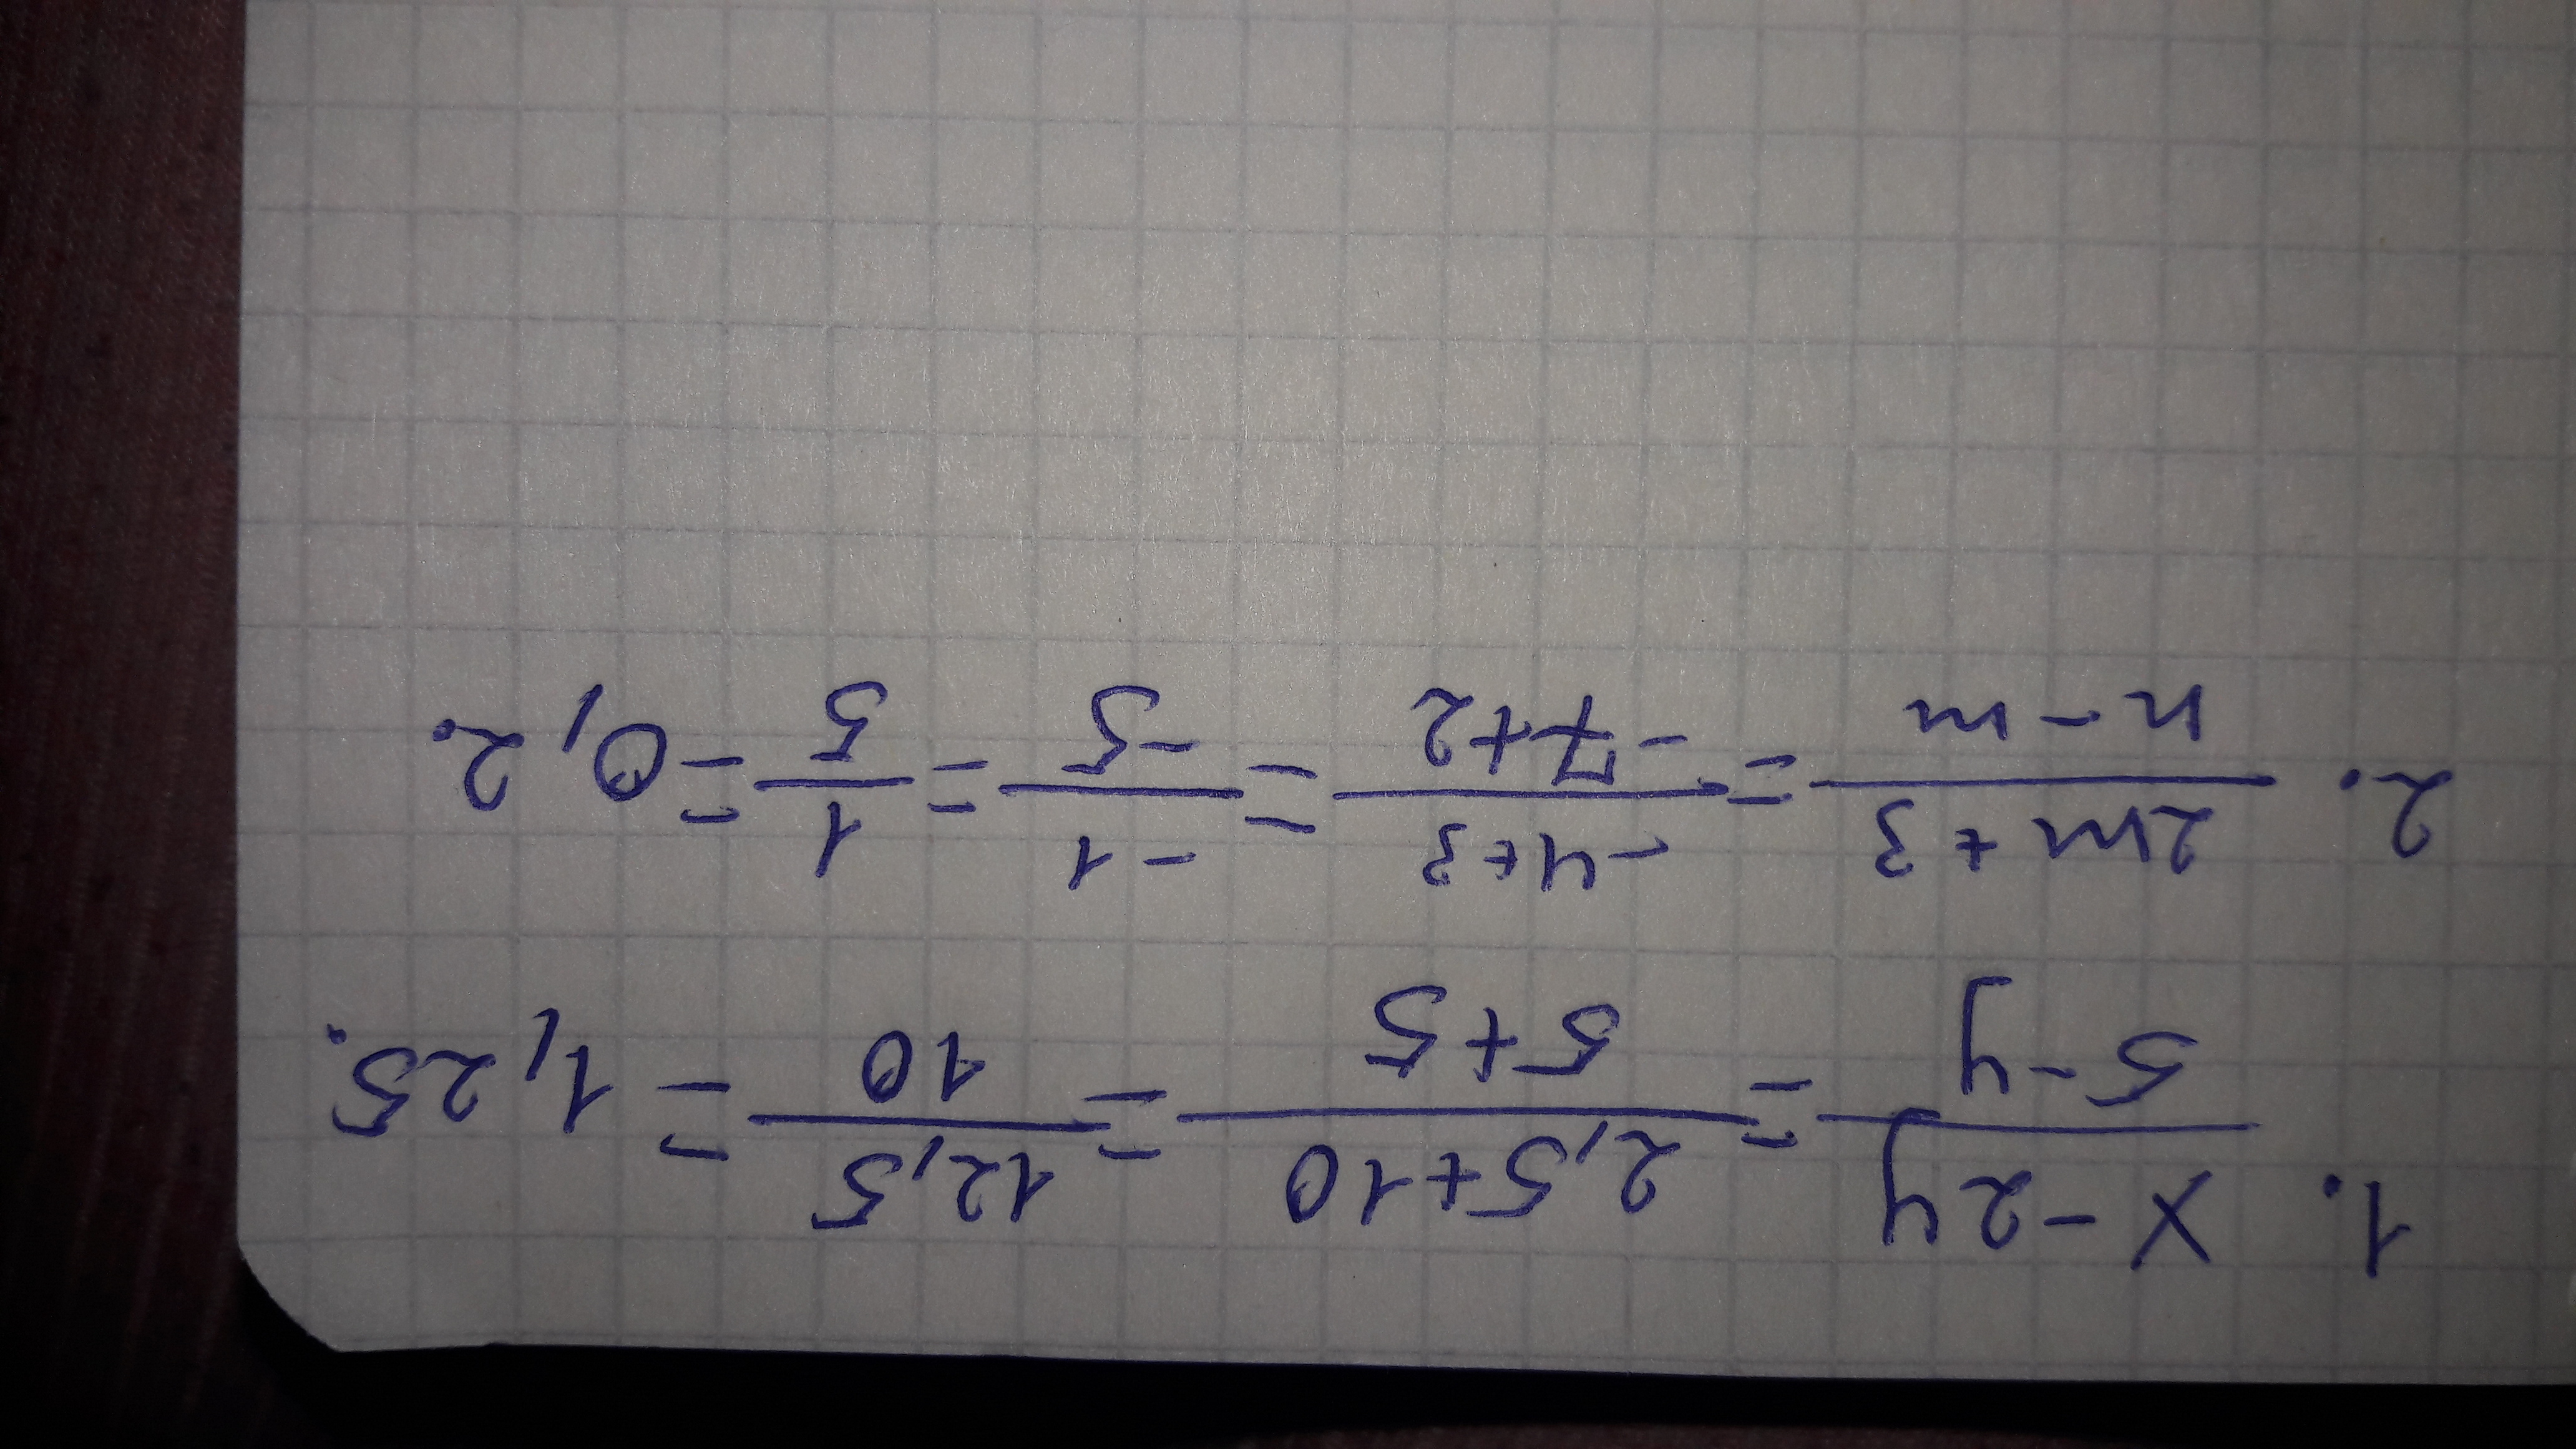 1. (x-2y)/(5-y) = (2,5+10)/(5+5) = 12,5/10 = 1,25.
2. (2m+3)/(n-m) = (-4+3)/(-7+2) = -1/-5 = 1/5 = 0,2.